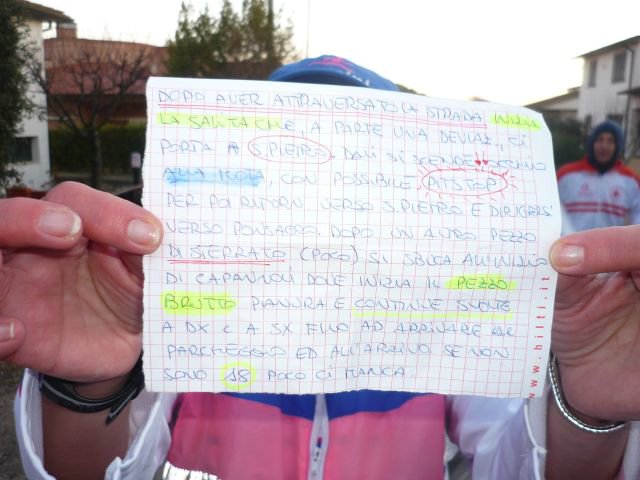 DOPO AVER ATTRAVERSATO LA STRADA INIZIA
LA SALITA CHE, A PARTE UNA DEVIAZ., CI
PORTA A S.PIETRO. DA LÌ SI SCENDE
ALLA, CON POSSIBILE PIT STOP
PER POI RITORN. VERSO S.PIETRO E DIRIGERSI
VERSO PONSACCO. DOPO UN ALTRO PEZZO
DI STERRATO (POCO) SI SBUCA ALL'INIZIO
DI CAPANNONI DOVE INIZIA IL PEZZO
BRUTTO PIANURA E CONTINUE SVOLTE
A DX E A SX FINO AD ARRIVARE AL
PARCHEGGIO ED ALL'ARRIVO. SE NON
SONO 18 POCO CI MANCA.
www.hilti.it